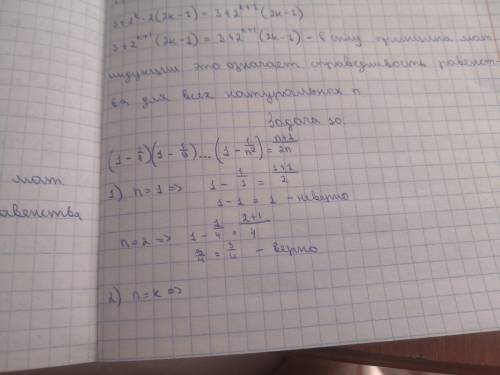 3+2ᵏ·2(2k-1) = 3+2ᵏ⁺¹(2k-1)
3+2ᵏ⁺¹(2k-1) = 3+2ᵏ⁺¹(2k-1) - в силу принципа мат
индукции это означает справедливость равенст-
ва для всех натуральных n
Задача 10.
(1-1/4)(1-1/9)...(1-1/n²)=(n+1)/2n
1) n=1 => 1-1/1=(1+1)/2
1-1=1 - неверно
n=2 => 1-1/4=(2+1)/4
3/4=3/4 - верно
2) n=k =>
мат
авенства